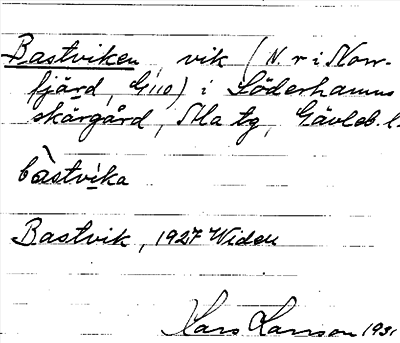 Bastviken, vik (N. r i Norr-
fjärd, G110) i Söderhamns
skärgård, Ma tg, Gävleb. l.
bàstvika
Bastvik, 1927 Widén
Hans Larsson 1931